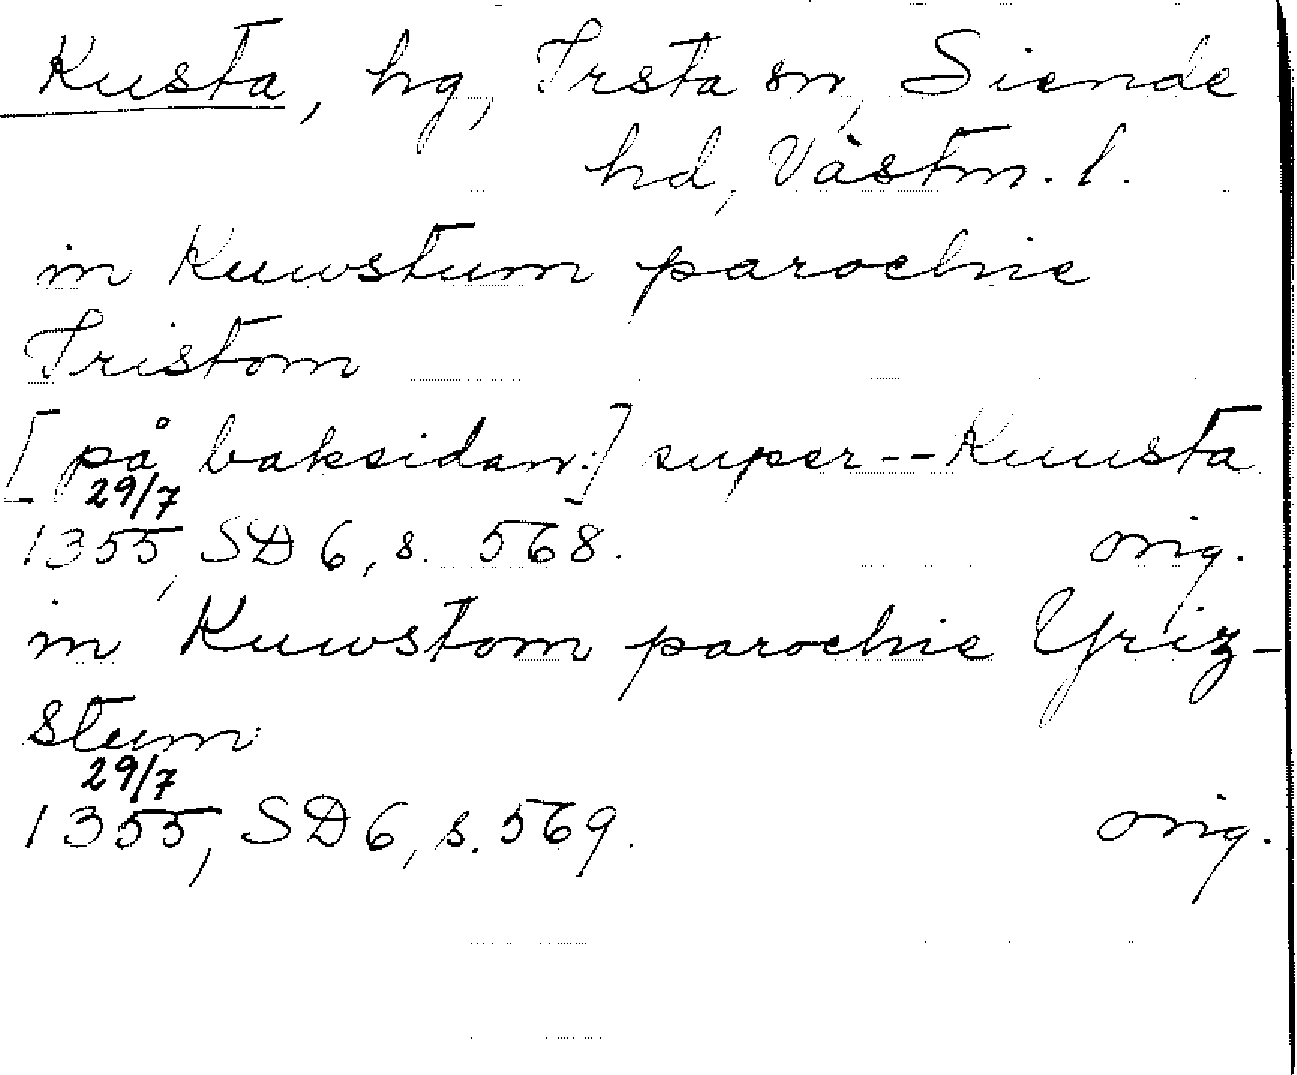 Kusta, hg, Irsta sn, Siende
hd, Västm. l.
in Kuwstum parochie
Tristom
[på baksidan:] super -- Kuusta
29/7
1355, SD 6, s. 568. orig.
in Kuwstom parochie Yriz-
stum
29/7
1355, SD 6, s. 569. orig.